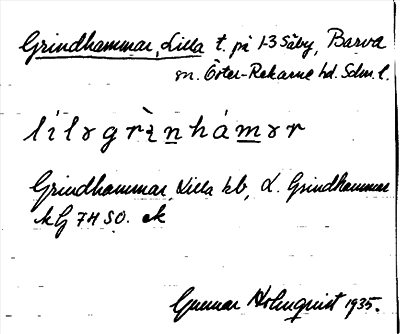 Grindhammar, Lilla t. på 1-3 Säby, Barva
sn. Öster-Rekarne hd. Sdm. l.
lìlɘgrìnhámɘr
Grindhammar, Lilla hb, L. Grindhammar
kG 7H SO. ek
Gunnar Holmquist 1935.